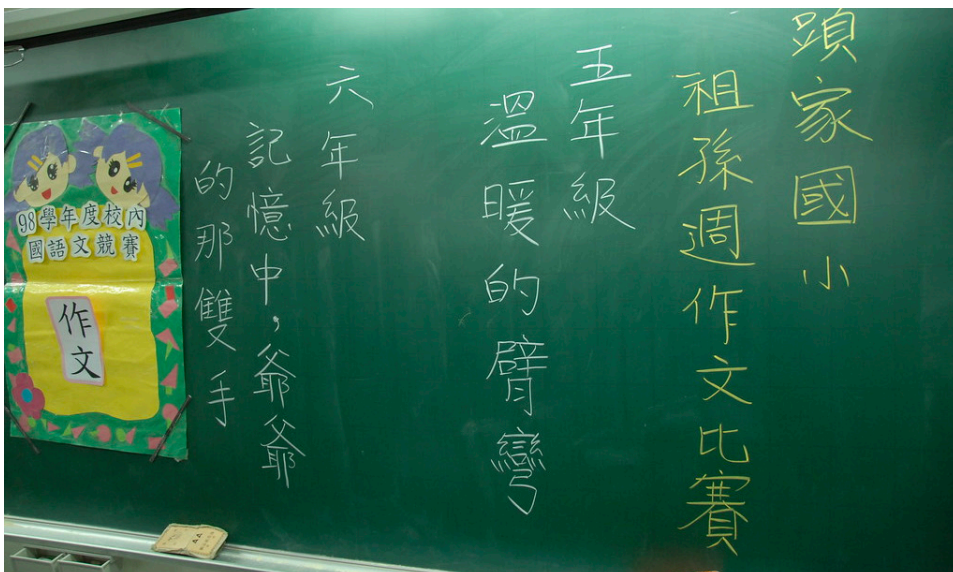 頭家國小
祖孫週作文比賽
五年級
溫暖的臂彎
六年級
記憶中，爺爺
的那雙手
98學年度校內
國語文競賽
作文